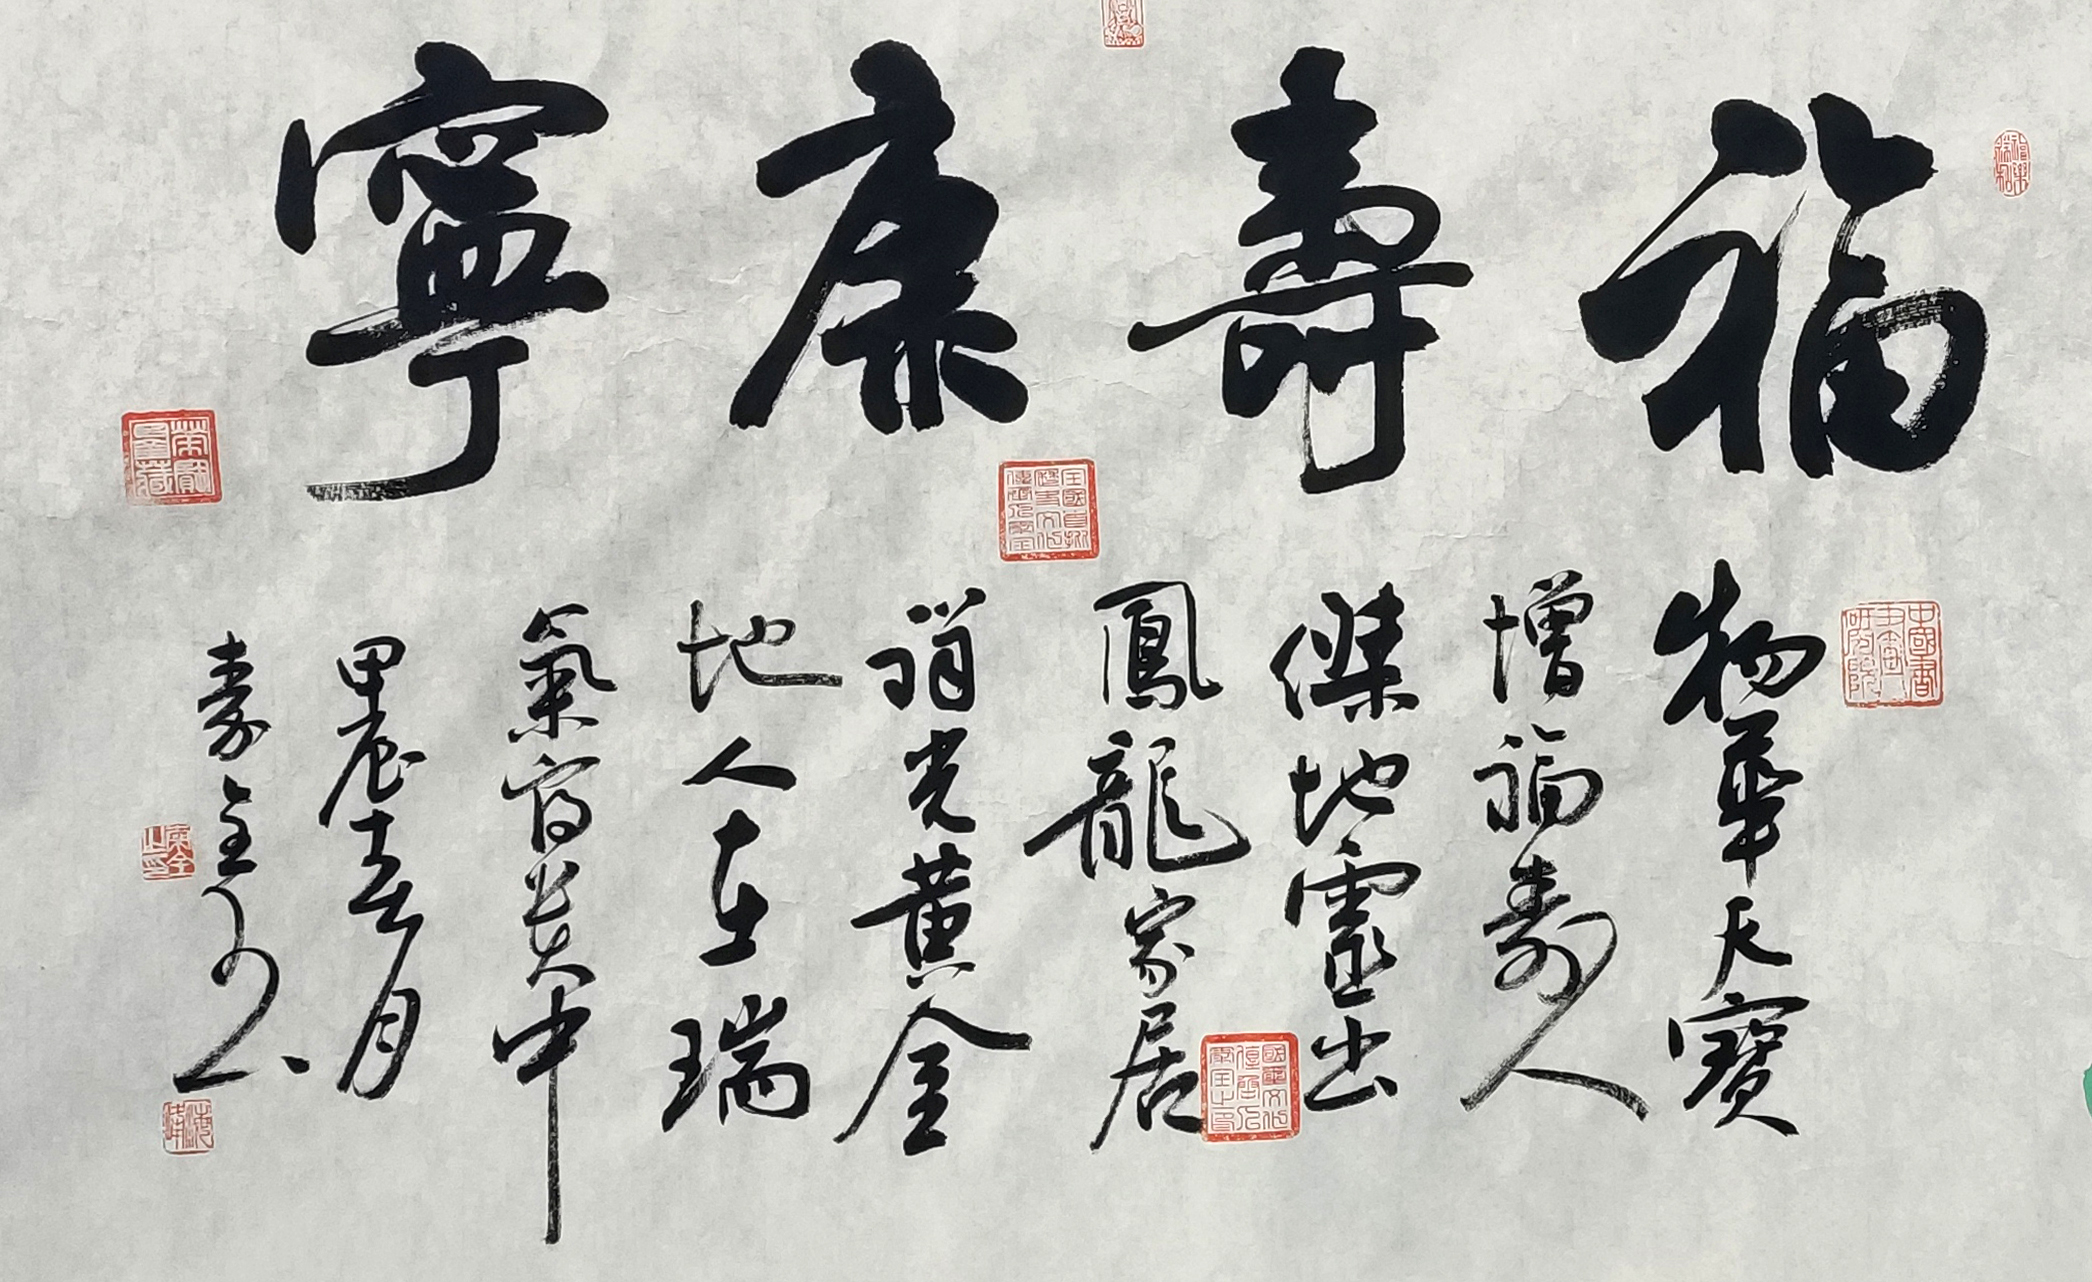 福壽康寧
物華天寶
增福壽人
傑地靈出
鳳龍家居
祥光黃金
地人在瑞
氣富貴中
甲辰 月